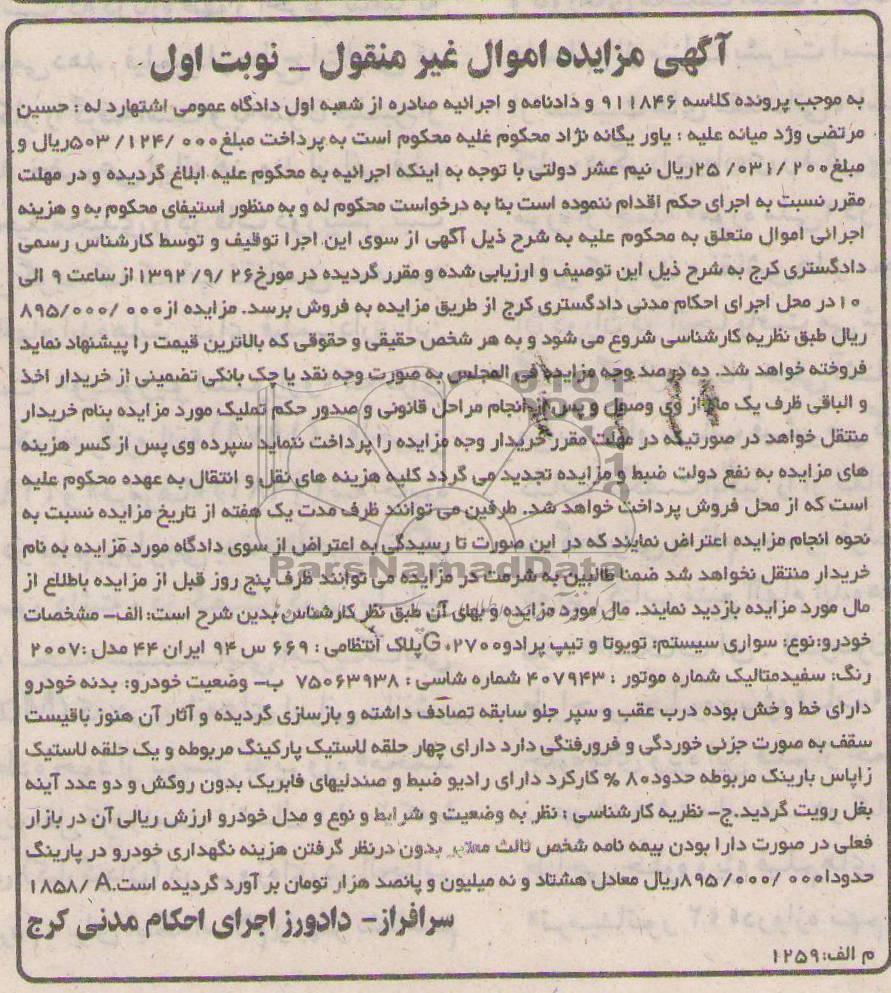 آگهی مزایده اموال غیر منقول _ نوبت اول
به موجب پرونده کلاسه ۹۱۱۸۴۶ و دادنامه و اجرائیه صادره از شعبه اول دادگاه عمومی اشتهارد له : حسین
مرتضی وژد میانه علیه : یاور یگانه نژاد محکوم غلیه محکوم است به پرداخت مبلغ۰۰۰ /۱۲۴ /۵۰۳ریال و
مبلغ۲۰۰ /۰۳۱ /۲۵ریال نیم عشر دولتی با توجه به اینکه اجرائیه به محکوم علیه ابلاغ گردیده و در مهلت
مقرر نسبت به اجرای حکم اقدام ننموده است بنا به درخواست محکوم له و به منظور استیفای محکوم به و هزینه
اجرائی اموال متعلق به محکوم علیه به شرح ذیل آگهی از سوی این اجرا توقیف و توسط کارشناس رسمی
دادگستری کرج به شرح ذیل این توصیف و ارزیابی شده و مقرر گردیده در مورخ۲۶ /۹/ ۱۳۹۲از ساعت ۹ الی
۱۰در محل اجرای احکام مدنی دادگستری کرج از طریق مزایده به فروش برسد. مزایده از۰۰۰ /۸۹۵/۰۰۰
ریال طبق نظریه کارشناسی شروع می شود و به هر شخص حقیقی و حقوقی که بالاترین قیمت را پیشنهاد نماید
فروخته خواهد شد. ده درصد وجه مزایده فی المجلس به صورت وجه نقد یا چک بانکی تضمینی از خریدار اخذ
و الباقی ظرف یک ماه از وی وصول و پس از انجام مراحل قانونی و صدور حکم تملیک مورد مزایده بنام خریدار
منتقل خواهد در صورتیکه در مهلت مقرر خریدار وجه مزایده را پرداخت ننماید سپرده وی پس از کسر هزینه
های مزایده به نفع دولت ضبط و مزایده تجدید می گردد کلیه هزینه های نقل و انتقال به عهده محکوم علیه
است که از محل فروش پرداخت خواهد شد. طرفین می توانند ظرف مدت یک هفته از تاریخ مزایده نسبت به
نحوه انجام مزایده اعتراض نمایند که در این صورت تا رسیدگی به اعتراض از سوی دادگاه مورد مزایده به نام
ParsNamadData
خریدار منتقل نخواهد شد ضمنا طالبین به شرکت در مزایده می توانند ظرف پنج روز قبل از مزایده باطلاع از
مال مورد مزایده بازدید نمایند. مال مورد مزایده و بهای آن طبق نظر کارشناس بدین شرح است: الف- مشخصات
خودرو:نوع: سواری سیستم: تویوتا و تیپ پرادو۲۷۰۰،Gپلاک انتظامی : ۶۶۹ س ۹۴ ایران ۴۴ مدل :۲۰۰۷
رنگ: سفیدمتالیک شماره موتور : ۴۰۷۹۴۳ شماره شاسی : ۷۵۰۶۳۹۳۸ ب- وضعیت خودرو: بدنه خودرو
دارای خط و خش بوده درب عقب و سپر جلو سابقه تصادف داشته و بازسازی گردیده و آثار آن هنوز باقیست
سقف به صورت جزئی خوردگی و فرورفتگی دارد دارای چهار حلقه لاستیک پارکینگ مربوطه و یک حلقه لاستیک
زاپاس بارینک مربوطه حدود۸۰ % کارکرد دارای رادیو ضبط و صندلیهای فابریک بدون روکش و دو عدد آینه
بغل رویت گردید.ج- نظریه کارشناسی : نظر به وضعیت و شرایط و نوع و مدل خودرو ارزش ریالی آن در بازار
فعلی در صورت دارا بودن بیمه نامه شخص ثالث معتبر بدون درنظر گرفتن هزینه نگهداری خودرو در پارینگ
حدودا۰۰۰ /۰۰۰ /۸۹۵ریال معادل هشتاد و نه میلیون و پانصد هزار تومان بر آورد گردیده است.A /۱۸۵۸
سرافراز- دادورز اجرای احکام مدنی کرج
م الف:۱۲۵۹